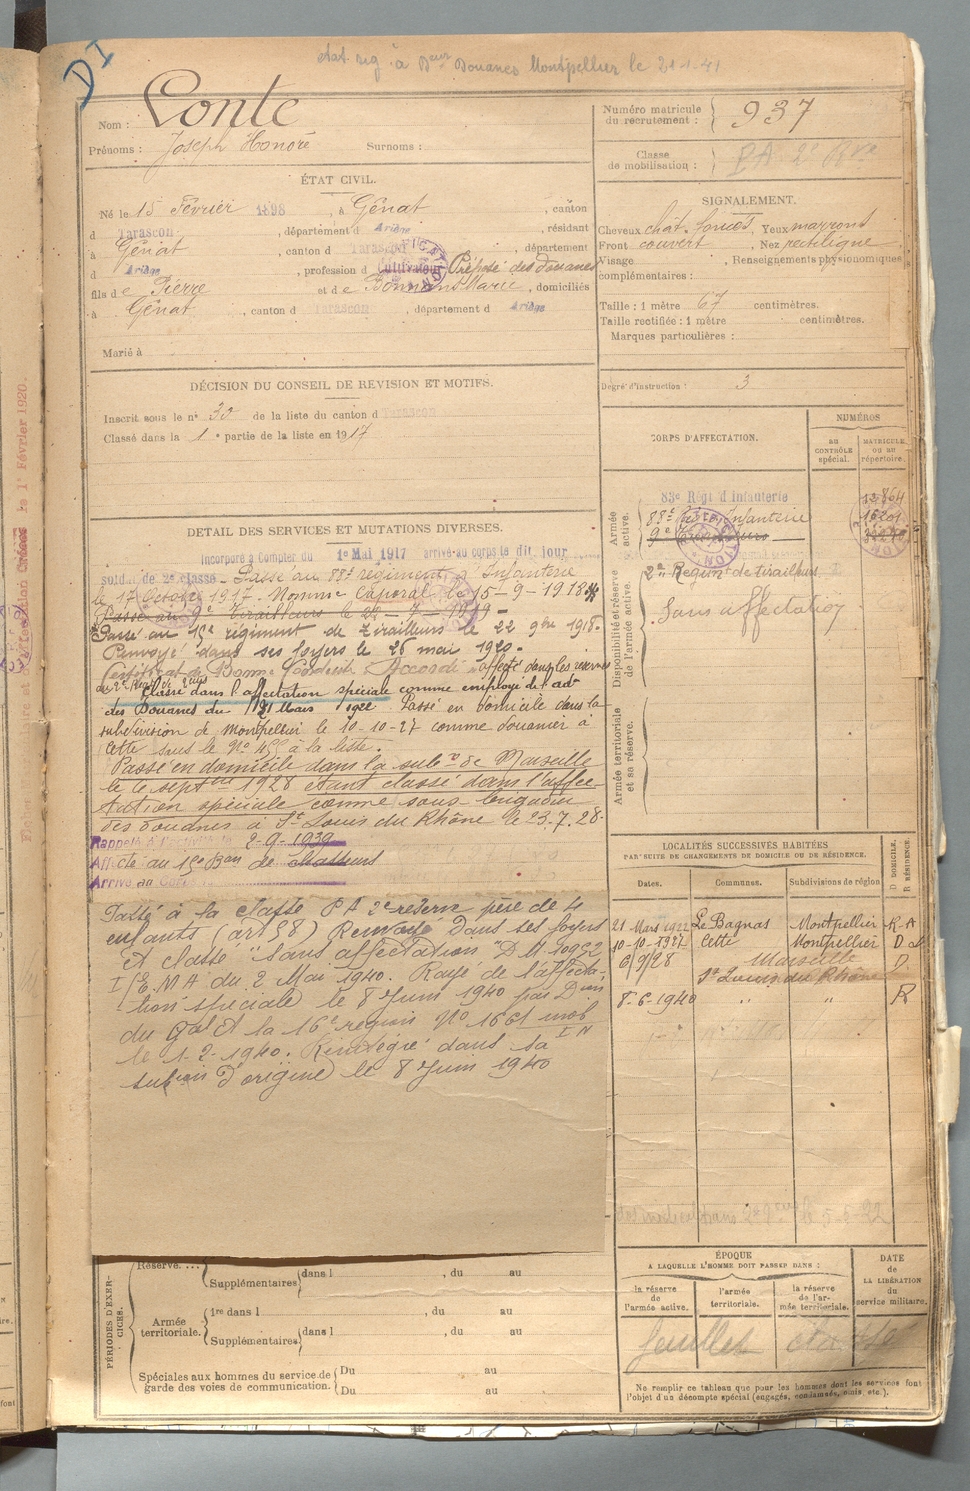 D I
etat sig. à Don Douanes Montpellier le 21-1-41
Nom : Conte
Prénoms : Joseph Honoré Surnoms :
Numéro matricule du recrutement : 937
Classe de mobilisation : PA 2e Rve
ÉTAT CIVIL.
Né le 15 Février 1898, à Génat, canton
d Tarascon, département d Ariège, résidant
à Génat, canton d Tarascon, département
d Ariège, profession d Cultivateur Préposé des douanes
fils de Pierre et de Marie, domiciliés
à Génat, canton d Tarascon, département d Ariège
Marié à
SIGNALEMENT.
Cheveux chat. foncés, Yeux marrons
Front couvert, Nez rectiligne
Visage , Renseignements physionomiques
complémentaires :
Taille : 1 mètre 67 centimètres.
Taille rectifiée : 1 mètre centimètres.
Marques particulières :
Degré d'instruction : 3
DÉCISION DU CONSEIL DE REVISION ET MOTIFS.
Inscrit sous le n° 30 de la liste du canton d Tarascon
Classé dans la 1e partie de la liste en 1917
CORPS D'AFFECTATION.
NUMÉROS
AU CONTRÔLE spécial.
MATRICULE OU AU répertoire.
Armée active.
83e Régt d'Infanterie
88e Infanterie
9e Tirailleurs
Disponibilité et réserve de l'armée active.
2e Régiment de tirailleurs
Sans affectation
Armée territoriale et sa réserve.
DETAIL DES SERVICES ET MUTATIONS DIVERSES.
Incorporé à Compter du 1er Mai 1917 arrivé au corps le dit jour
soldat de 2e classe. Passé au 88e régiment d'Infanterie
le 17 Octobre 1917. Nommé Caporal le 15-9-1918
Passé au 9e Tirailleurs le 1919-
Passé au 15e régiment de Tirailleurs le 22 9bre 1918.
Renvoyé dans ses foyers le 26 mai 1920.
Certificat de Bonne Conduite Accordé affecté dans les réserves
du 2e Régt de
Classé dans l'affectation spéciale comme employé de l'adn
des Douanes du 21 Mars 1922 Passé en domicile dans la
subdivision de Montpellier le 10-10-27 comme douanier à
Cette sous le N° à la liste.
Passé en domicile dans la subon de Marseille
le 6 septbre 1928 étant classé dans l'affec-
tation spéciale comme sous-brigadier
des douanes à St Louis du Rhône le 23.7.28-
Rappelé à l'activité le 2-9-1939
Affecté au 15e Bon de
Arrivé au Corps
Passé à la classe PA 2e réserve père de 4
enfants (art 58) Renvoyé dans ses foyers
et classé "sans affectation" DM 10952
I/EMA du 2 Mai 1940. Rayé de l'affecta-
tion spéciale le 8 Juin 1940 par Dion
du Gal Ct la 16e région N° 1661 mob
le 1-2-1940. Réintégré dans sa
subion d'origine le 8 Juin 1940
LOCALITÉS SUCCESSIVES HABITÉES
PAR SUITE DE CHANGEMENTS DE DOMICILE OU DE RÉSIDENCE.
Dates. Communes. Subdivisions de région D DOMICILE. R RÉSIDENCE.
21 Mars 1922 Le Bagnas Montpellier R-A
10-10-1927 Cette Montpellier D
6/9/28 Marseille D
St Louis du Rhône
8-6-1940 " " R
ÉPOQUE
A LAQUELLE L'HOMME DOIT PASSER DANS :
la réserve de l'armée active.
l'armée territoriale.
la réserve de l'armée territoriale.
DATE DE LA LIBÉRATION du service militaire.
feuillet classé
Ne remplir ce tableau que pour les hommes dont les services font
l'objet d'un décompte spécial (engagés, condamnés, omis, etc.).
PÉRIODES D'EXERCICES.
Réserve...
Supplémentaires dans l , du au
Armée territoriale.
1re dans l , du au
Supplémentaires dans l , du au
Spéciales aux hommes du service de garde des voies de communication.
Du au
Du au